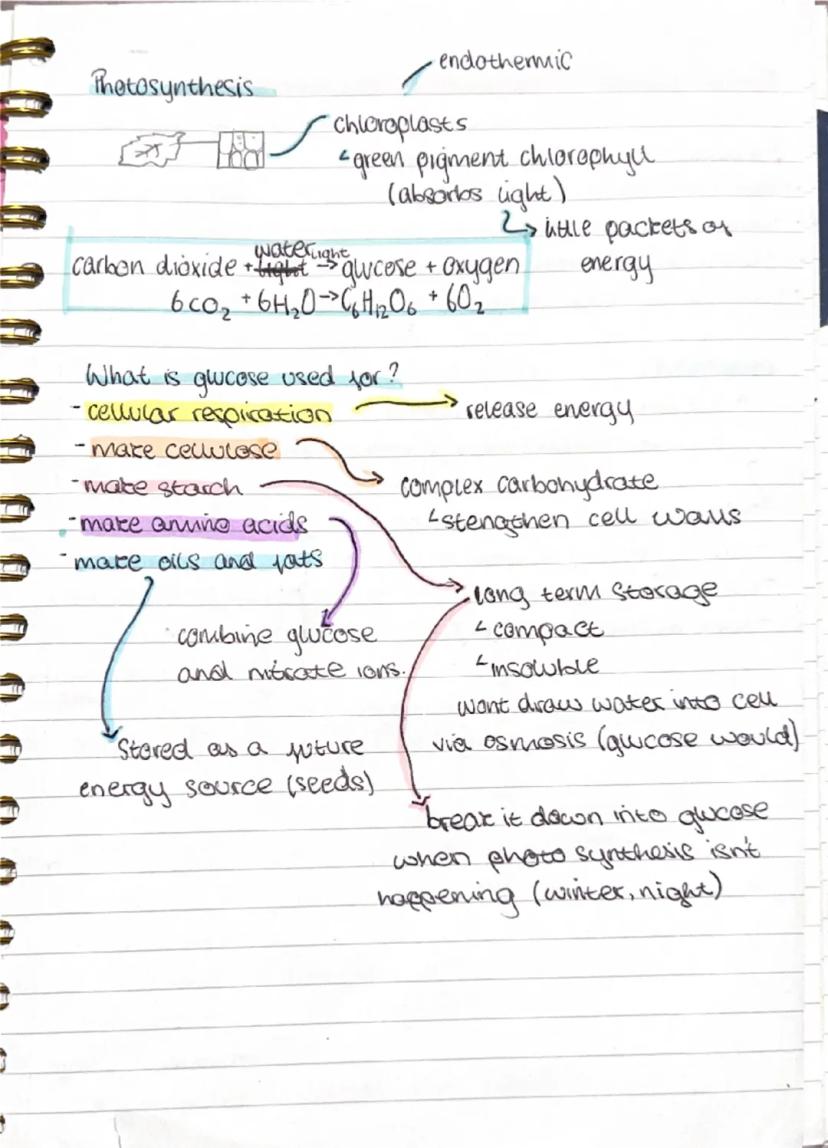 endothermic
Photosynthesis
chloroplasts
↳green pigment chlorophyll
(absorbs light)
↳ little packets of
energy
carbon dioxide + ~~light~~ water light → glucose + oxygen
6CO₂ + 6H₂O → C₆H₁₂O₆ + 6O₂
What is glucose used for?
- cellular respiration → release energy
- make cellulose
- make starch
complex carbohydrate
↳stengthen cell walls
- make amino acids
- make oils and fats
long term storage
↳ compact
↳insoluble
wont draw water into cell
via osmosis (glucose would)
combine glucose
and nitrate ions.
Stored as a future
energy source (seeds)
break it down into glucose
when photosynthesis isn't
happening (winter, night)